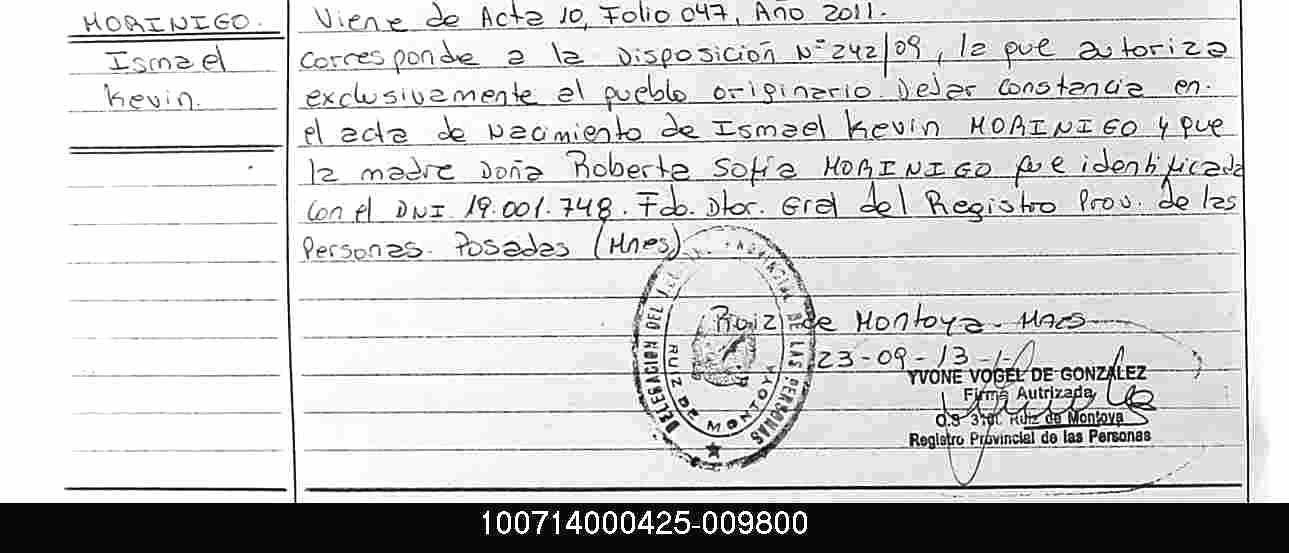 MORINIGO.
Ismael
Kevin.
Viene de Acta 10, Folio 047, Año 2011.
Corresponde a la Disposición Nº 242/09, la que autoriza
exclusivamente al pueblo originario. Dejar constancia en.
el acta de Nacimiento de Ismael Kevin MORINIGO y que
la madre Doña Roberta Sofía MORINIGO fue identificada
con el DNI. 19.001.748. Fdo. Dtor. Gral del Registro Prov. de las
Personas. Posadas (Mnes)
Ruiz de Montoya. Mnes
23-09-13
DELEGACION DEL PROVINCIAL DE LAS PERSONAS
RUIZ DE MONTOYA
YVONE VOGEL DE GONZALEZ
Firma Autrizada
Ruiz de Montoya
Registro Provincial de las Personas
100714000425-009800